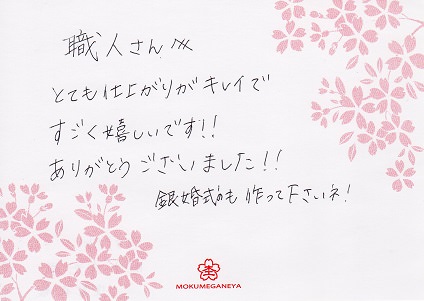 職人さんへ
とても仕上がりがキレイで
すごく嬉しいです!!
ありがとうございました!!
銀婚式のも作って下さいネ!
MOKUMEGANEYA